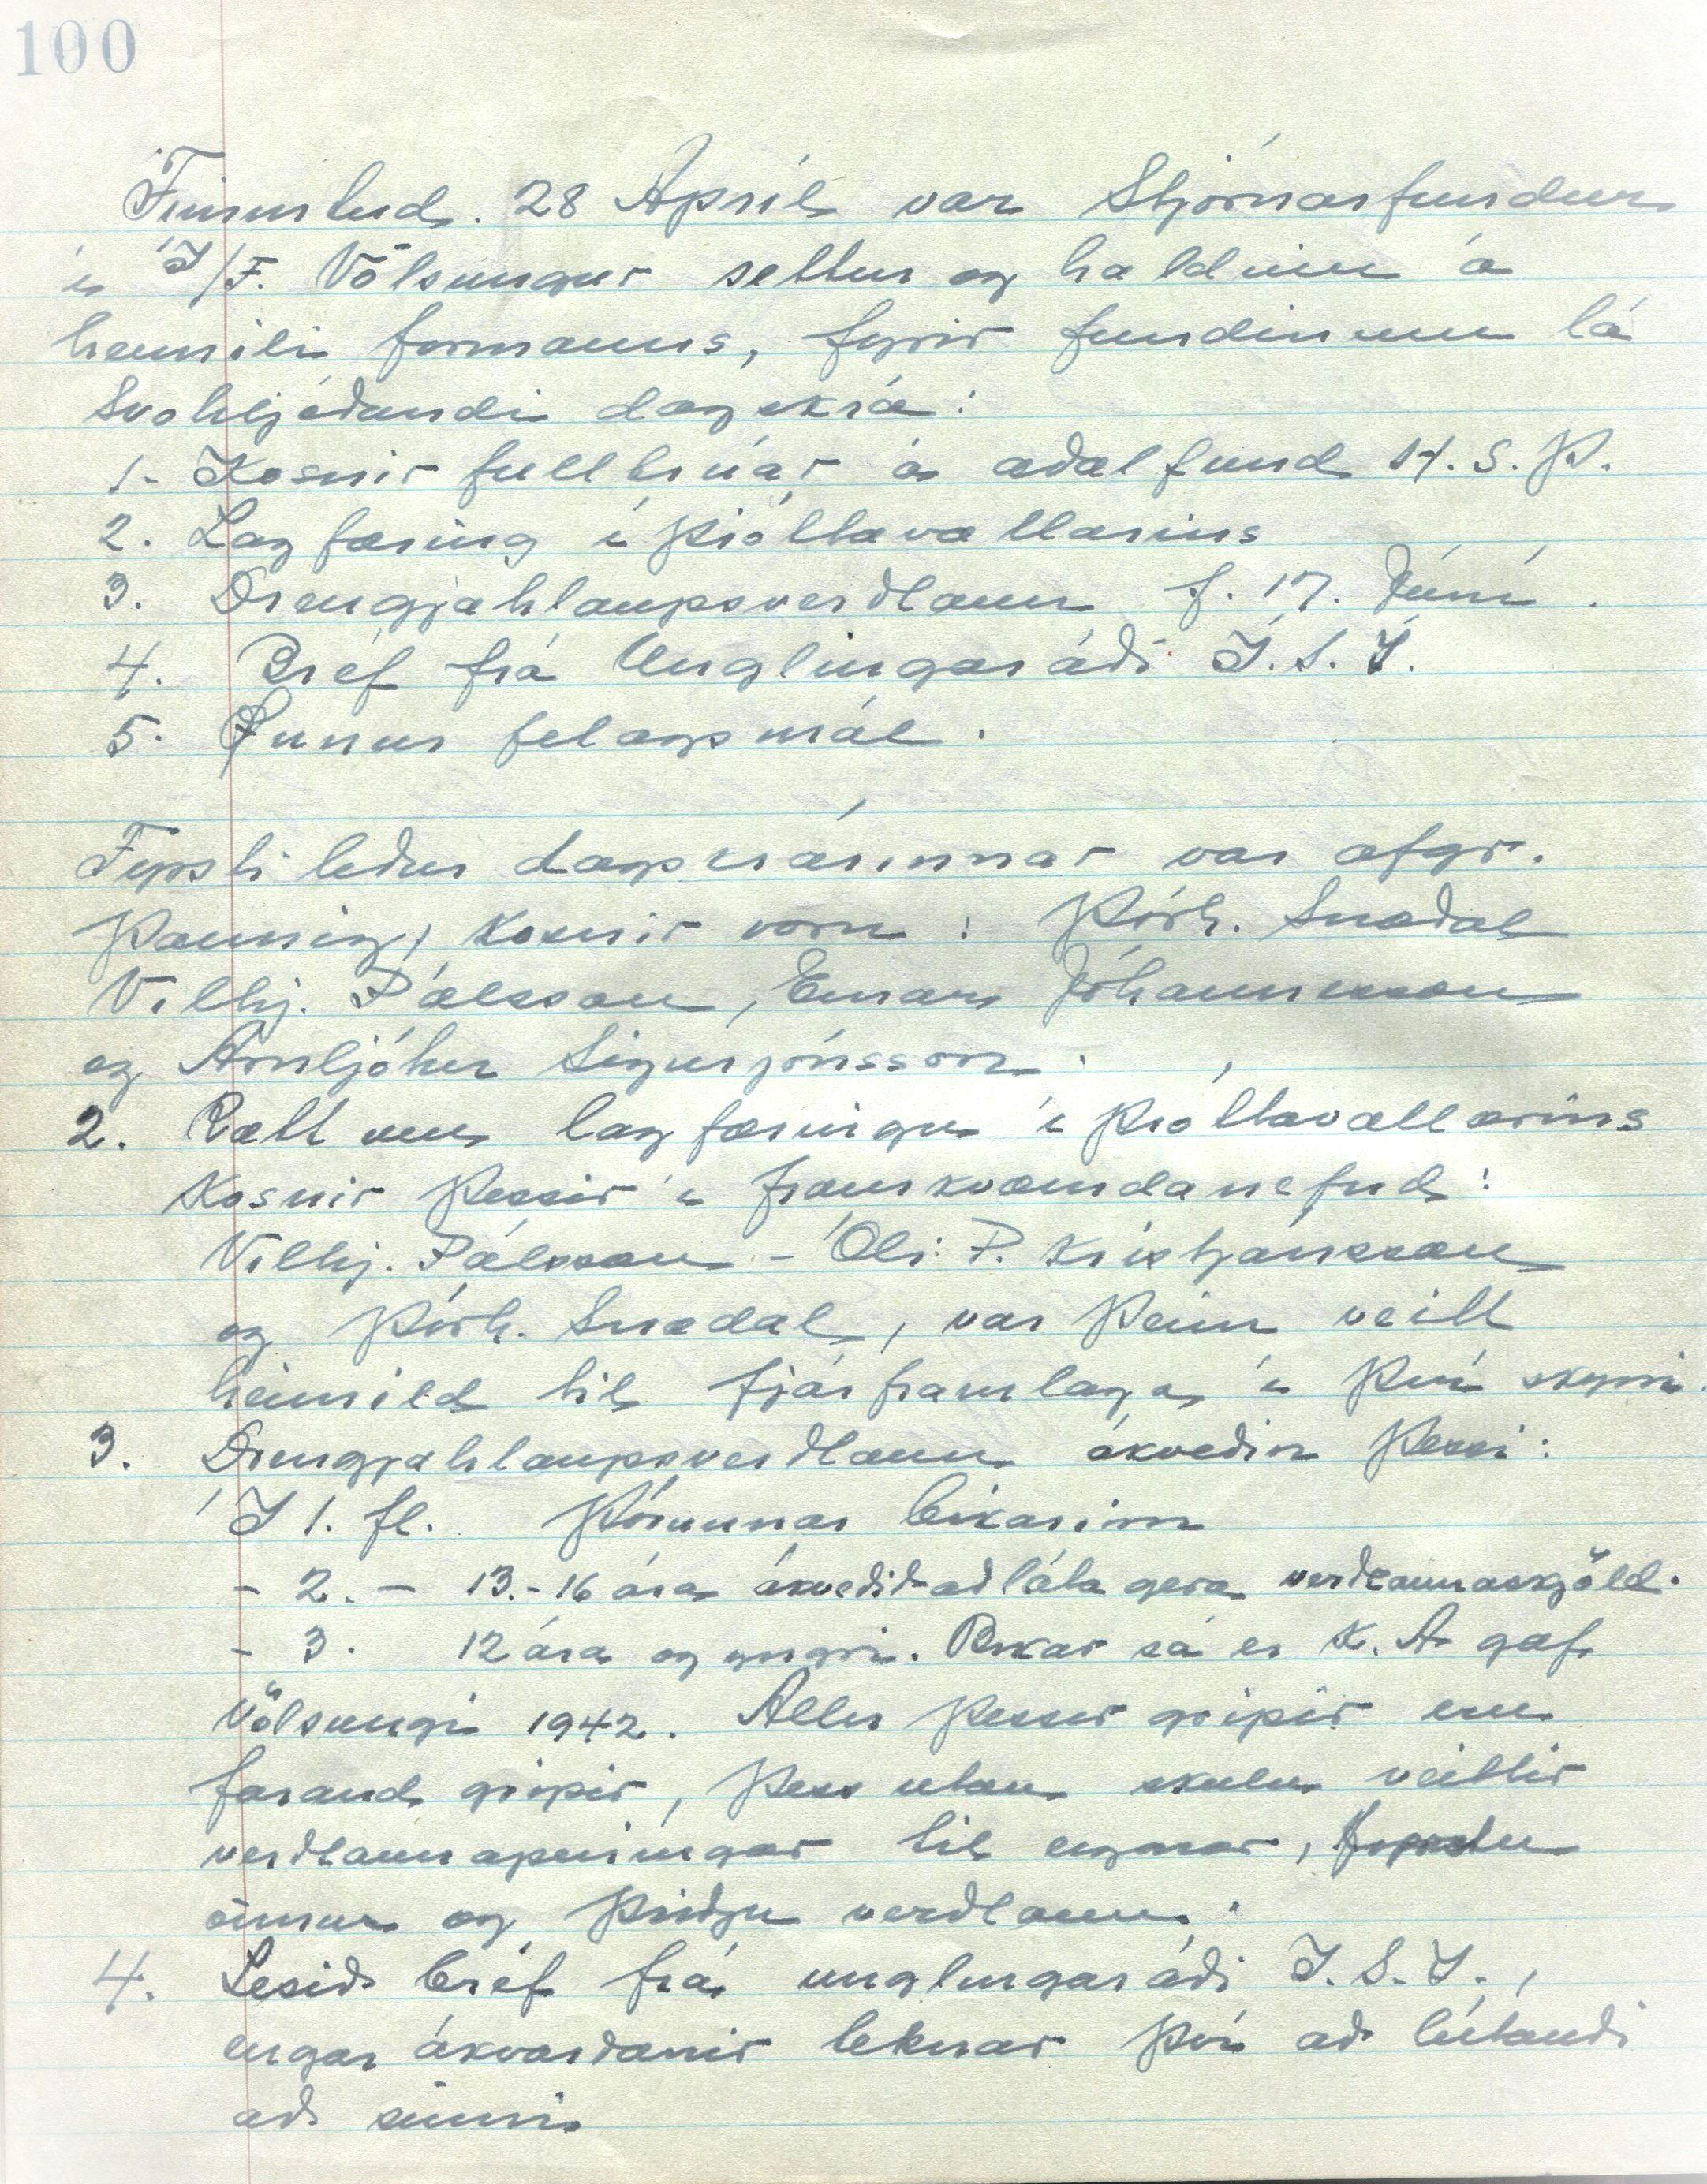 100
Fimmtud. 28 Apríl var Stjórnarfundur
í Í/F. Völsungur settur og haldinn á
heimili formanns, fyrir fundinum lá
svohljóðandi dagskrá:
1. Kosnir fulltrúar á aðalfund H.S.Þ.
2. Lagfæring íþróttavallarins
3. Drengjahlaupsverdlaun f. 17. Júní.
4. Bréf frá Unglingaráði Í.S.Í.
5. Önnur felagsmál.
Fyrsti liður dagskrárinnar var afgr.
þannig, kosnir voru: Þórh. Snædal
Vilhj. Pálsson, Einar Jóhannesson
og Arnljótur Sigurjónsson.
2. Rætt um lagfæringu íþróttavallarins
kosnir þessir í framkvæmdanefnd:
Vilhj. Pálsson - Óli P. Kristjánsson
og Þórh. Snædal, var þeim veitt
heimild til fjárframlaga í því skyni.
3. Drengjahlaupsverdlaun ákveðin þessi:
Í 1. fl. Þórunnar bikarinn
- 2. - 13.-16 ára ákveðið að láta gera verdlaunaskjöld.
- 3. 12 ára og yngri. Bikar sá er K.A gaf
Völsungi 1942. Allir þessir gripir eru
farand gripir, þess utan skulu veittir
verdlaunapeningar til eignar, fyrstu
önnur og þriðju verdlaun.
4. Lesið bréf frá unglingaráði Í.S.Í.,
engar ákvarðanir teknar því að lútandi
að sinni